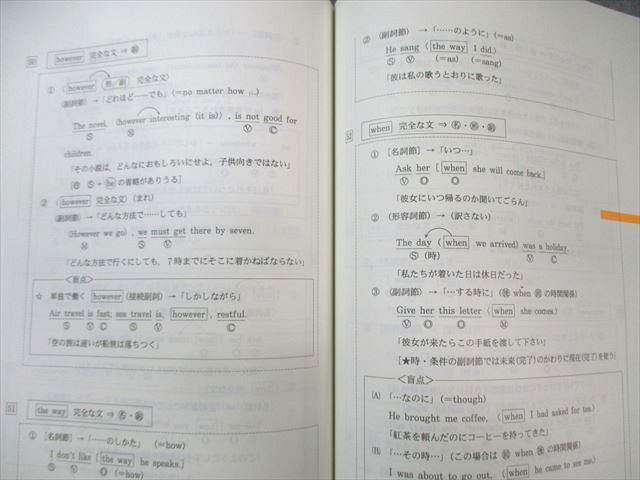 50
however 完全な文 ⇒ 副
① (however 形/副 完全な文)
(副詞節) →「どれほど──でも」(=no matter how ...)
The novel, (however interesting (it is)), is not good for
Ⓢ Ⓜ Ⓥ Ⓒ
children.
「その小説は、どんなにおもしろいにせよ、子供向きではない」
Ⓢ + be の省略がありうる]
② (however 完全な文) (まれ)
(副詞節) →「どんな方法で……しても」
(However we go), we must get there by seven.
Ⓜ Ⓢ Ⓥ
「どんな方法で行くにしても、7時までにそこに着かねばならない」
<盲点>
☆ 単独で働く however (接続副詞) →「しかしながら」
Air travel is fast; sea travel is, however, restful.
Ⓢ Ⓥ Ⓒ Ⓢ Ⓥ Ⓒ
「空の旅は速いが船旅は落ちつく」
51
the way 完全な文 ⇒ 名・副
① [名詞節] →「……のしかた」(=how)
I don't like [the way he speaks.]
Ⓢ Ⓥ Ⓞ (=how)
② (副詞節) →「……のように」(=as)
He sang (the way I did.)
Ⓢ Ⓥ (=as) (=sang)
「彼は私の歌うとおりに歌った」
52
when 完全な文 ⇒ 名・形・副
① [名詞節] →「いつ…」
Ask her [when she will come back.]
Ⓥ Ⓞ Ⓞ
「彼女にいつ帰るのか聞いてごらん」
② (形容詞節) →(訳さない)
The day (when we arrived) was a holiday.
Ⓢ (時) Ⓥ Ⓒ
「私たちが着いた日は休日だった」
③ (副詞節) →「…する時に」(when の時間関係)
Give her this letter (when she comes.)
Ⓥ Ⓞ Ⓞ Ⓜ
「彼女が来たらこの手紙を渡して下さい」
[★時・条件の副詞節では未来(完了)のかわりに現在(完了)を使う]
<盲点>
(A)「…なのに」(=though)
He brought me coffee, (when I had asked for tea.)
「紅茶を頼んだのにコーヒーを持ってきた」
(B)「…その時…」(この場合は when の時間関係)
I was about to go out, (when he came to see me.)